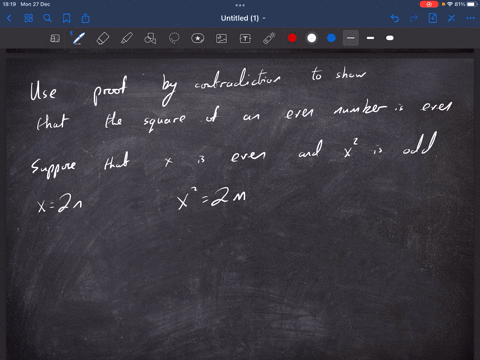 18:19 Mon 27 Dec
81%
Untitled (1)
Use proof by contradiction to show
that the square of an even number is even
Suppose that x is even and x² is odd
x=2n x²=2m